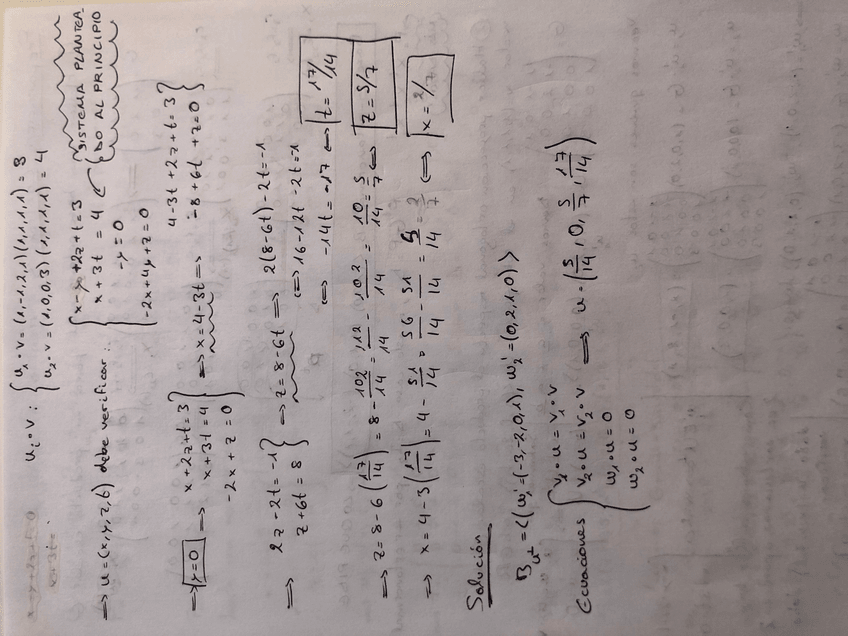 u_i∘v : { u_1∘v = (1,-1,2,1)(1,1,1,1) = 3
u_2∘v = (1,0,0,3)(1,1,1,1) = 4
⟹ u=(x,y,z,t) debe verificar: { x-y+2z+t=3
x+3t = 4
-y=0
-2x+4y+z=0
SISTEMA PLANTEA-
DO AL PRINCIPIO
⟹ y=0 ⟹ x+2z+t=3
x+3t=4
-2x+z=0 } ⟹ x=4-3t ⟹ 4-3t+2z+t=3
-8+6t+z=0 }
⟹ 2z-2t=-1
z+6t=8 } ⟹ z=8-6t ⟹ 2(8-6t)-2t=-1
⟺ 16-12t-2t=-1
⟺ -14t=-17 ⟺ t=17/14
⟹ z=8-6(17/14)=8-102/14=112/14-102/14=10/14=5/7 ⟺ z=5/7
⟹ x=4-3(17/14)=4-51/14=56/14-51/14=5/14=2/7 ⟺ x=2/7
Solución
B_u⊥=<(w_1'=(-3,-2,0,1), w_2'=(0,2,1,0)>
Ecuaciones { v_1∘u=v_1∘v
v_2∘u=v_2∘v
w_1∘u=0
w_2∘u=0
⟹ u=(5/14,0,5/7,17/14)